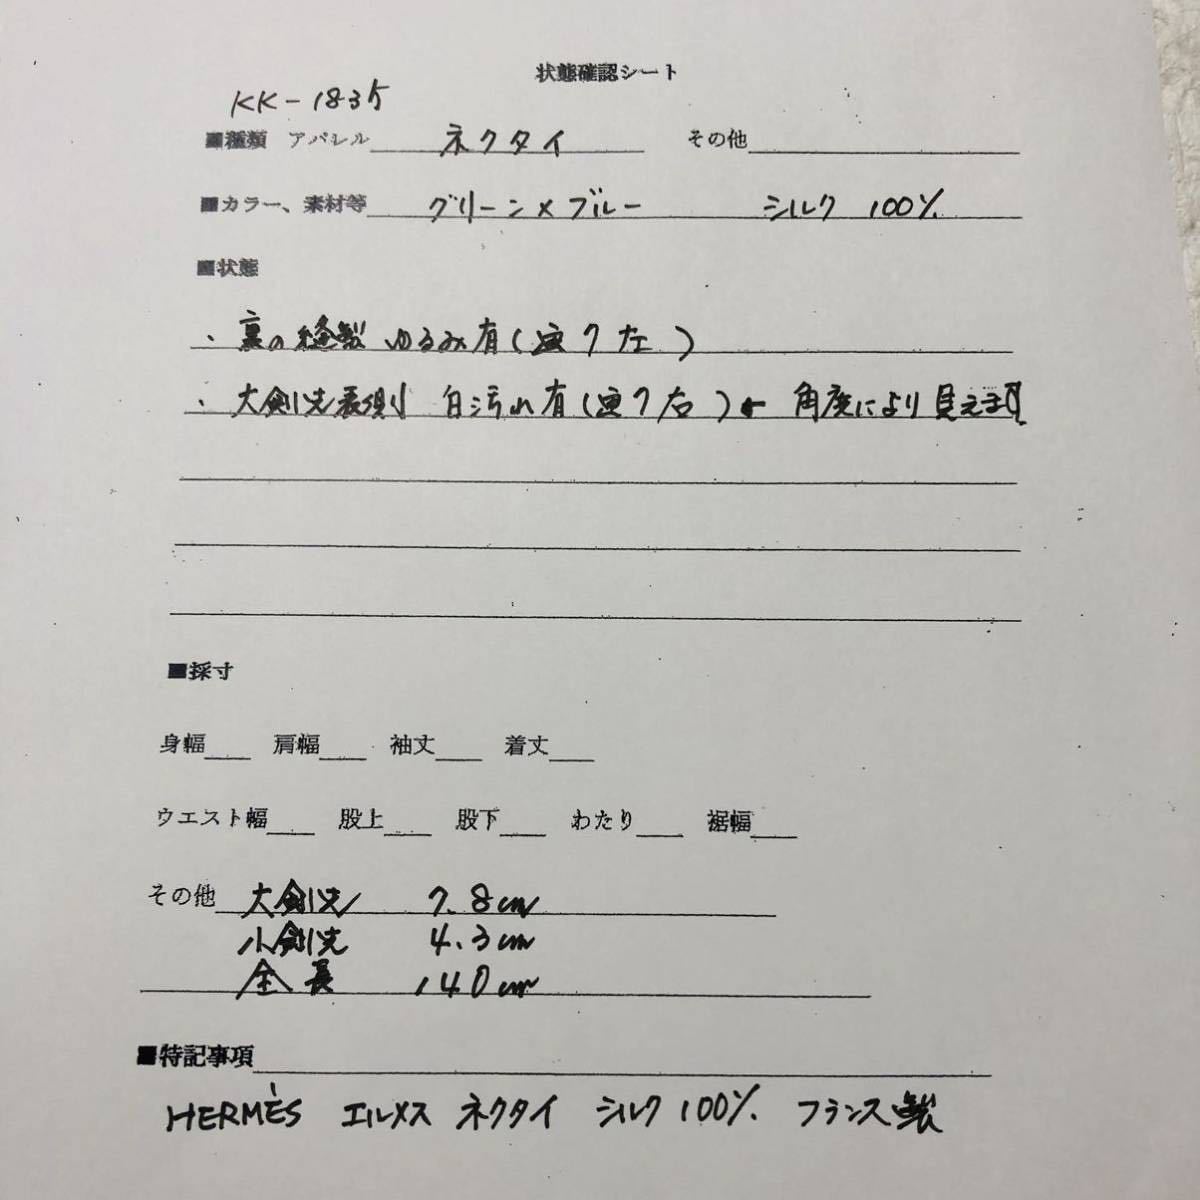 状態確認シート
KK-1835
■種類 アパレル ネクタイ その他
■カラー、素材等 グリーン×ブルー シルク 100%
■状態
・裏の縫製 ゆるみ有(画7左)
・大剣先表側 白汚れ有(画7右)← 角度により見えます
■採寸
身幅 肩幅 袖丈 着丈
ウエスト幅 股上 股下 わたり 裾幅
その他 大剣先 7.8cm
小剣先 4.3cm
全長 140cm
■特記事項
HERMÈS エルメス ネクタイ シルク 100% フランス製